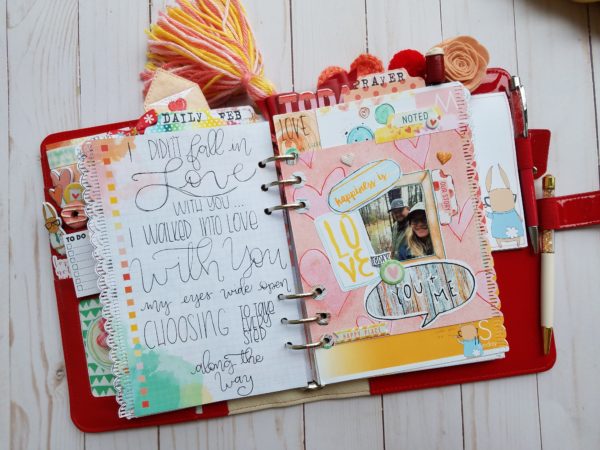 DAILY FEB
TO DO
I DIDN'T fall in
Love
WITH YOU...
I WALKED INTO LOVE
With You
my eyes wide open
CHOOSING TO TAKE
STEP
along the
way
PRAYER
TODA
LOVE
M
NOTED
happiness is
LO
VE
TODAY
YOU
ME
HAPPY PLACE
S